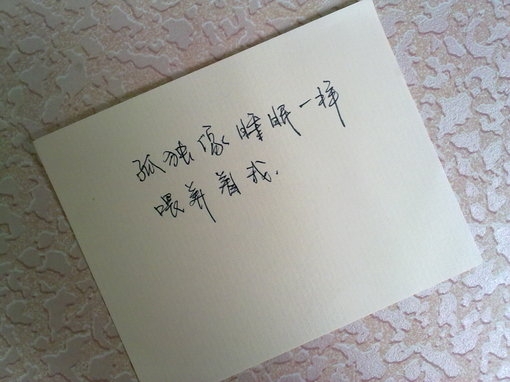 孤独像睡眠一样
喂养着我.